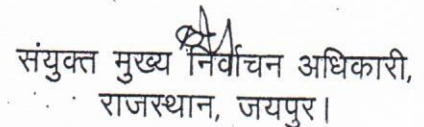 संयुक्त मुख्य निर्वाचन अधिकारी,
राजस्थान, जयपुर।